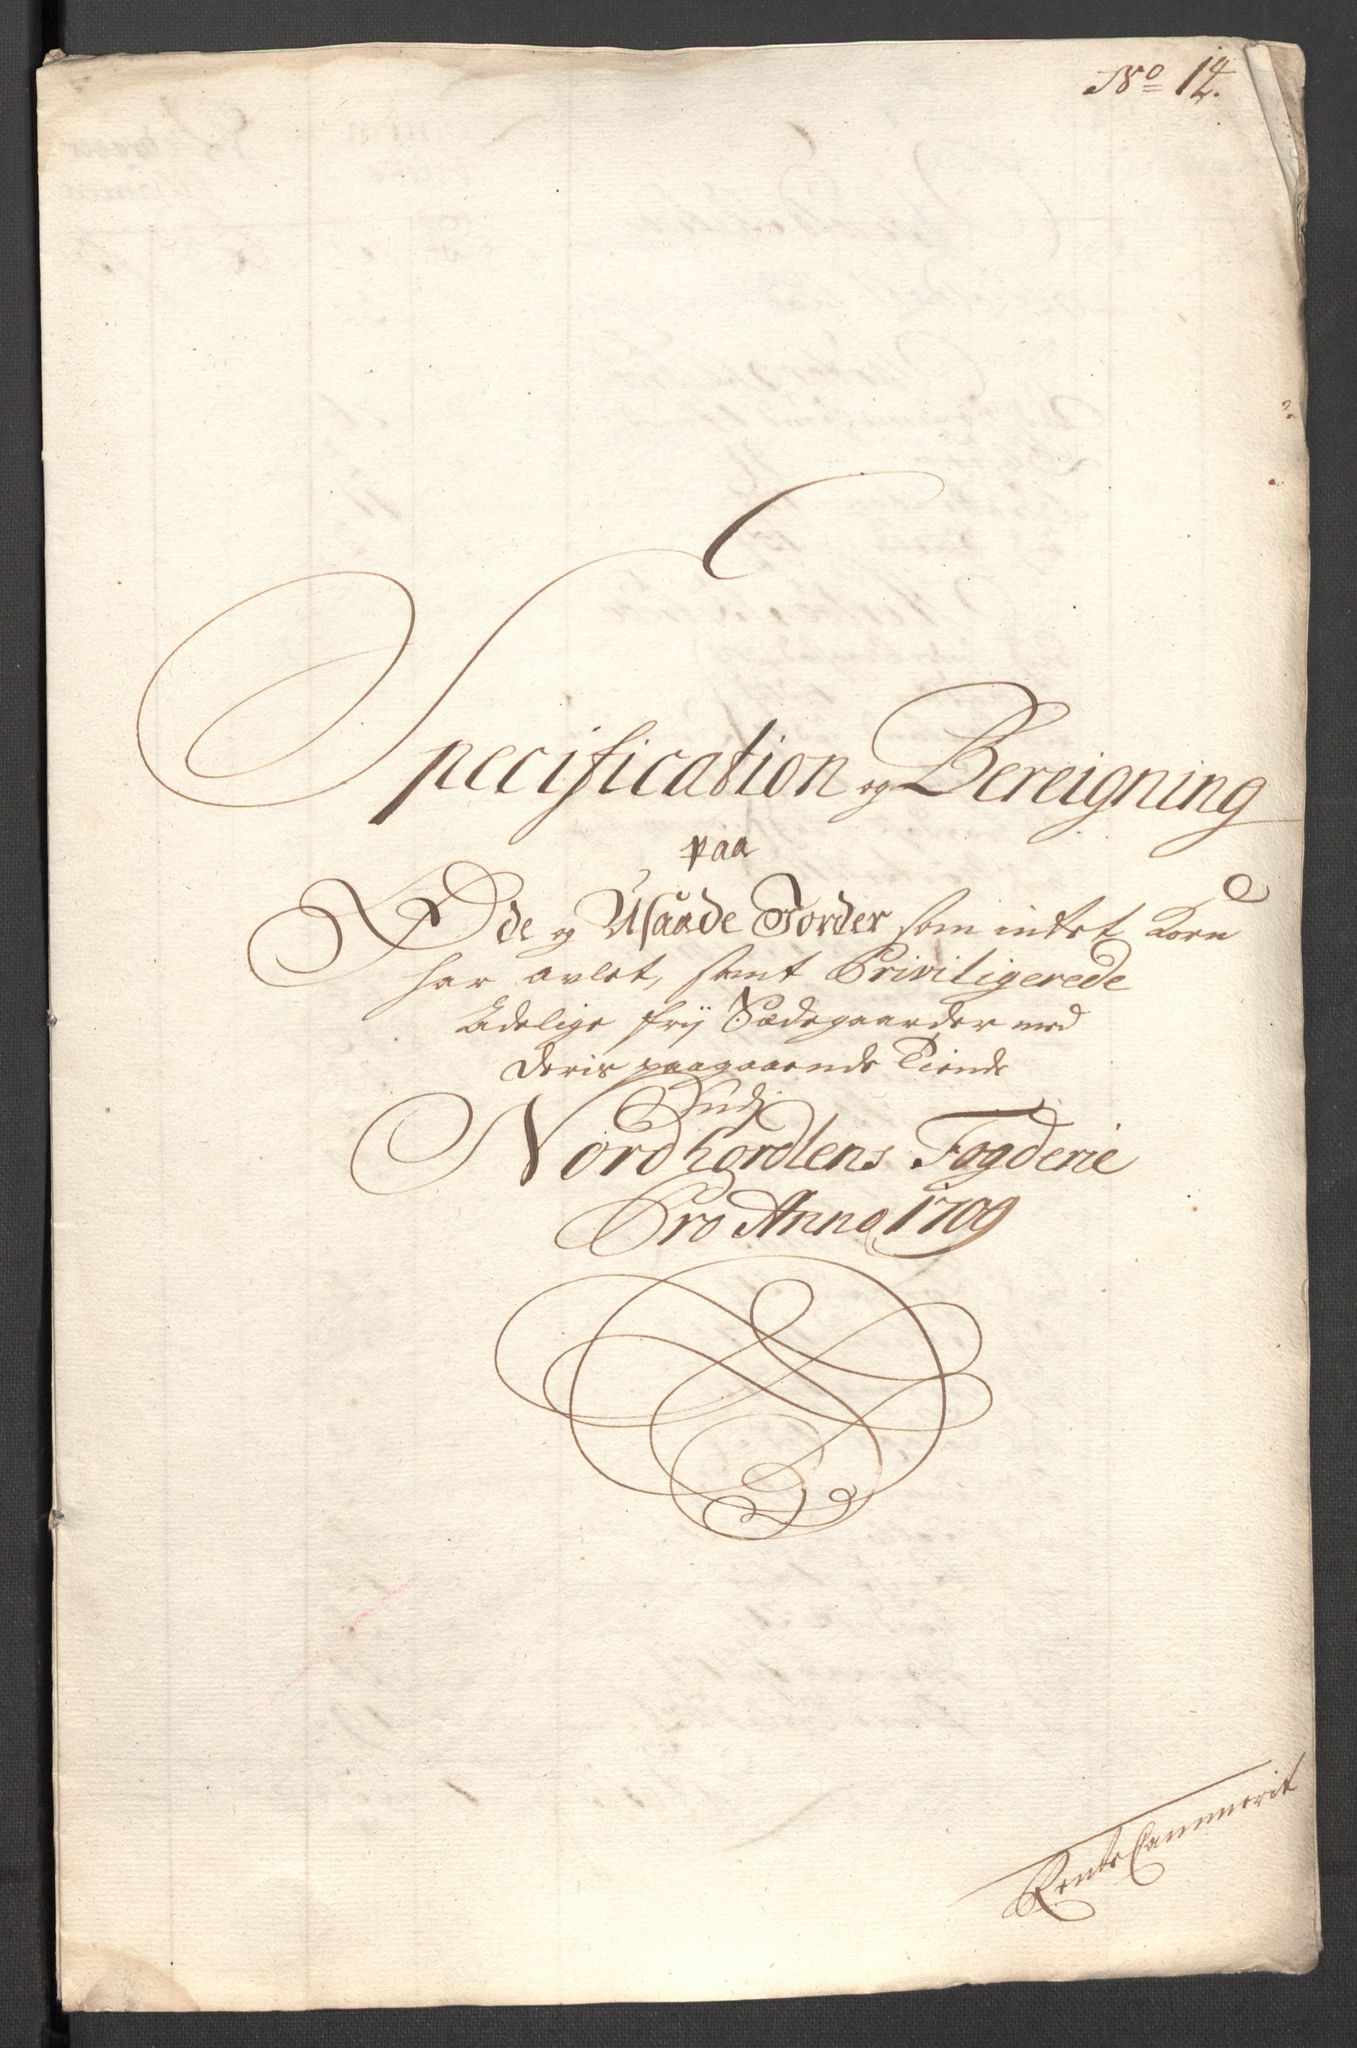 No 14.
Specification og Bereigning
paa
Øde og Usaade Jorder som intet Korn
har avlet, samt Priviligerede
Adelige frij Sædegaarder med
deris paagaaende Tiende
Udj
Nordhordlens Fogderie
Pro Anno 1709
Rente Cammerit